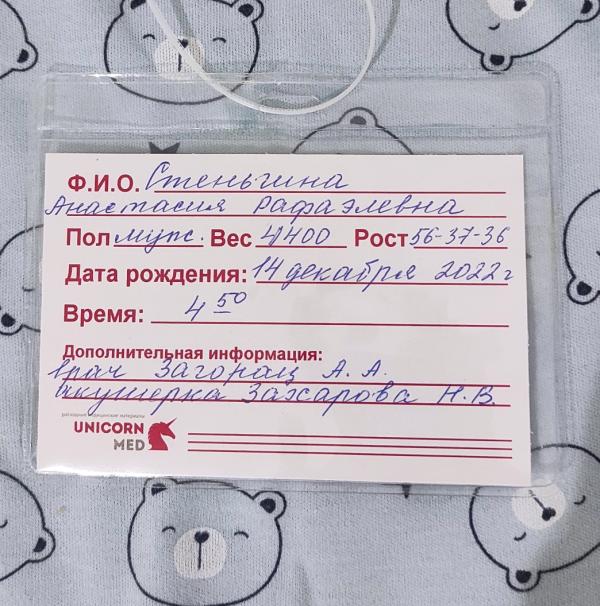 Ф.И.О. Стеньгина
Анастасия Рафаэлевна
Пол муж. Вес 4400 Рост 56-37-36
Дата рождения: 14 декабря 2022г
Время: 4 50
Дополнительная информация:
врач Загорац А. А.
акушерка Захарова Н. В.
расходные медицинские материалы
UNICORN
MED